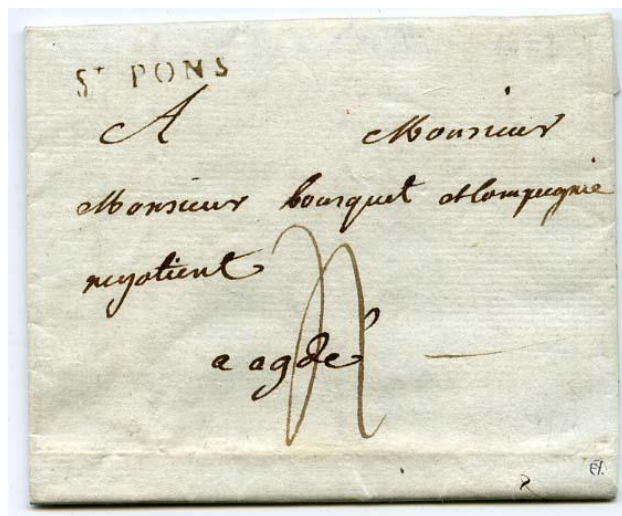 St PONS
A Monsieur
Monsieur bousquet et Compagnie
negotient
a agde